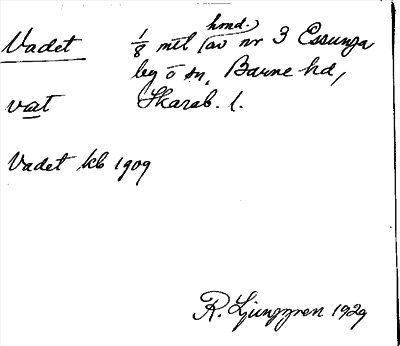 Vadet 1/8 mtl (hmd.) av nr 3 Essunga
by o sn, Barne hd,
vat Skarab. l.
Vadet kb 1909
R. Ljunggren 1929